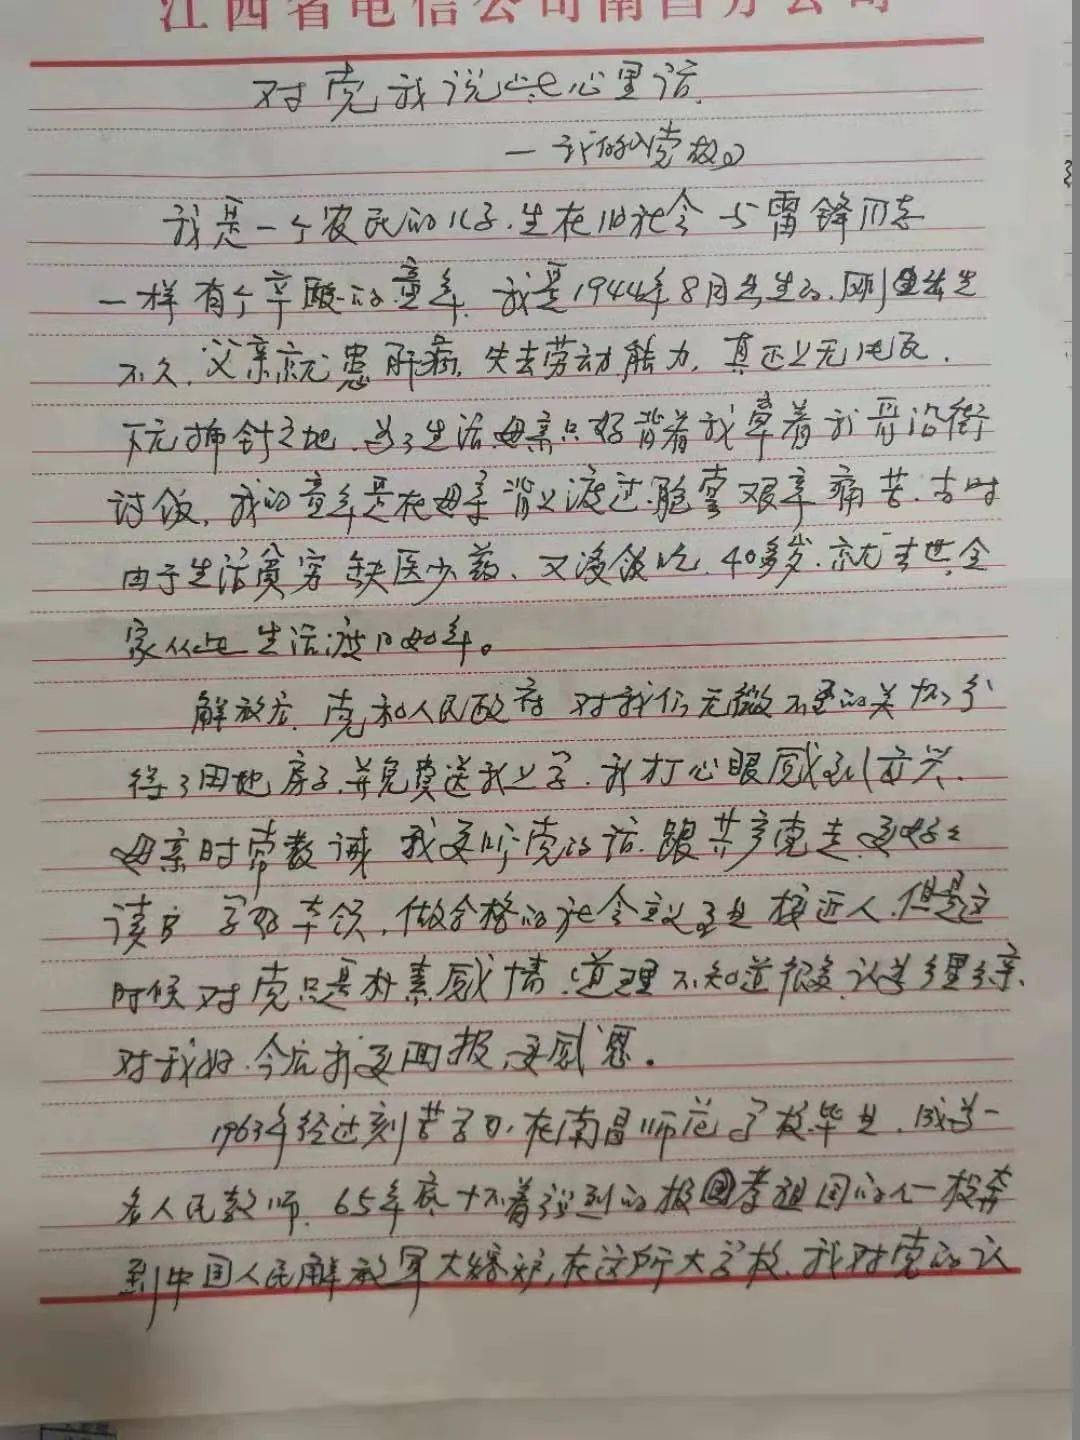 江西省电信公司南昌分公司
对党我说些心里话
一我的党故事
我是一个农民的儿子.生在旧社会 与雷锋同志
一样有个辛酸的童年.我是1944年8月出生的.刚出生
不久.父亲就患肝病,失去劳动能力,真正上无片瓦.
下无插针之地.为了生活.母亲只好背着我牵着我哥沿街
讨饭,我的童年是在母亲背上渡过.饱尝艰辛痛苦.
由于生活贫穷缺医少药、又没饭吃.40多岁.就去世.全
家从此生活渡日如年。
解放后.党和人民政府对我们无微不至的关怀,分
得了田地房子.并免费送我上学.我打心眼感到高兴.
母亲时常教诫我要听党的话.跟共产党走.要好好
读书 学好本领,做合格的社会主义事业接班人.但是这
时候对党只是朴素感情.道理不知道很多.认为乡里乡亲.
对我好.今后我要回报.要感恩。
1963年经过刻苦学习,在南昌师范学校毕业.成为一
名人民教师.65年底怀着强烈的报孝祖国的心投奔
到中国人民解放军大熔炉,在这所大学校.我对党的认